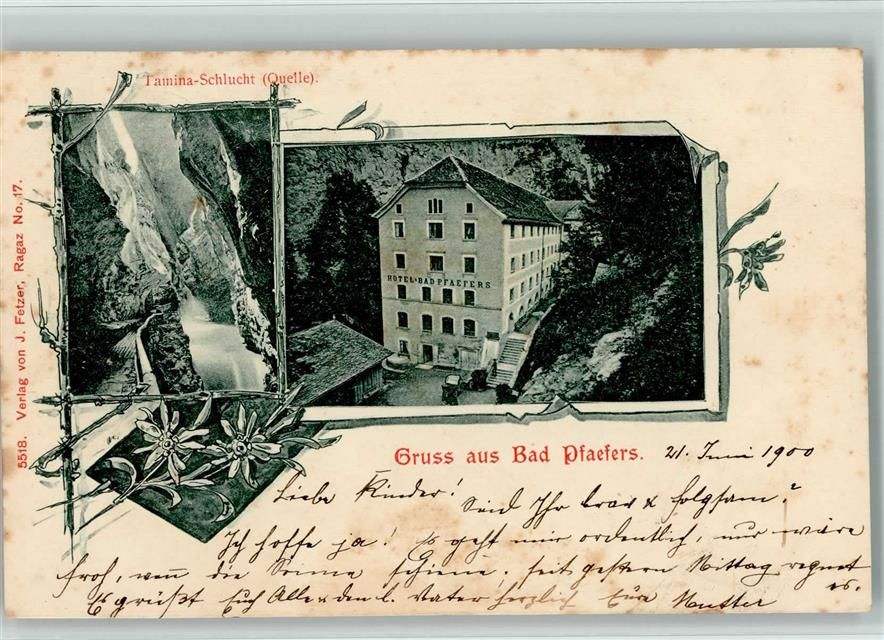 Tamina-Schlucht (Quelle).
5518. Verlag von J. Fetzer, Ragaz No. 17.
HOTEL & BAD PFAEFERS
Gruss aus Bad Pfaefers. 21. Juni 1900
Liebe Kinder!
Seid Ihr brav & folgsam?
Ich hoffe ja! Es geht mir ordentlich, nur wäre
froh, wenn die Sonne schiene. Seit gestern Mittag regnet
es.
Es grüßt Euch Alle & den l. Vater herzlich Eure Mutter